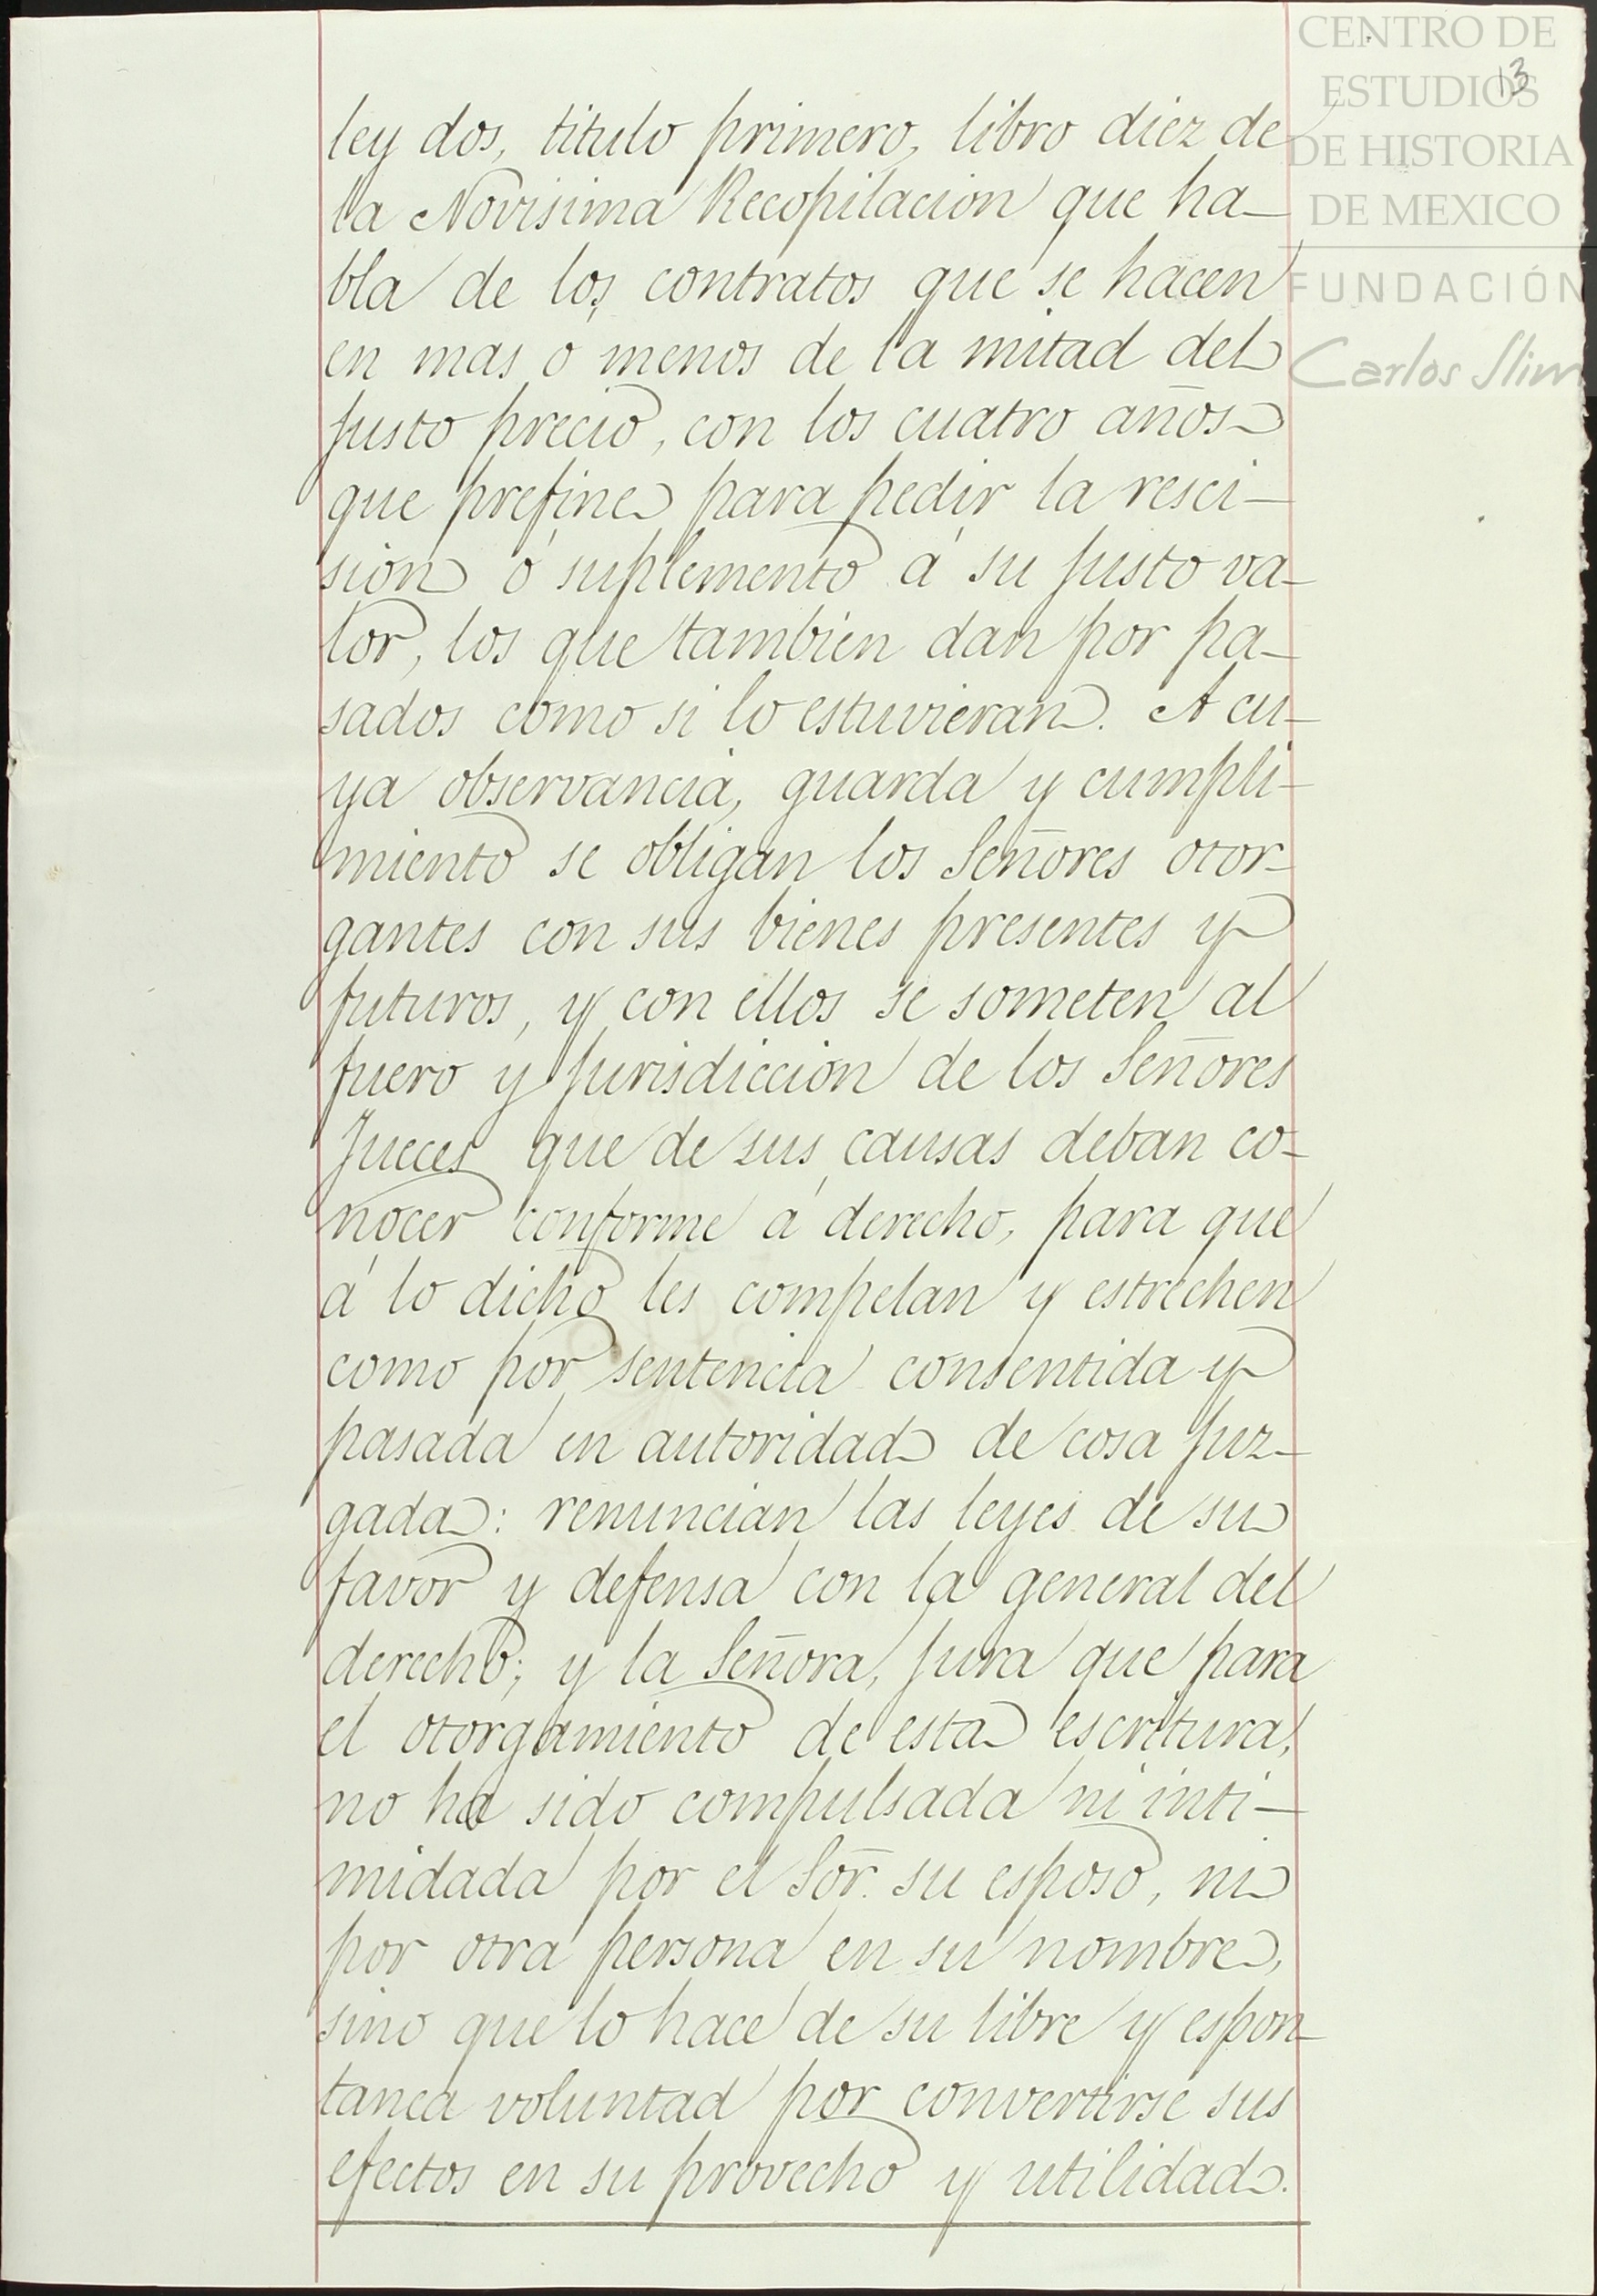 CENTRO DE
ESTUDIOS
DE HISTORIA
DE MEXICO
FUNDACIÓN
Carlos Slim
13
ley dos, titulo primero, libro diez de
la Novisima Recopilacion que ha-
bla de los contratos que se hacen
en mas o menos de la mitad del
justo precio, con los cuatro años
que prefine para pedir la resci-
sion ó suplemento á su justo va-
lor, los que tambien dan por pa-
sados como si lo estuvieran. A cu-
ya observancia, guarda y cumpli-
miento se obligan los Señores otor-
gantes con sus bienes presentes y
futuros, y con ellos se someten al
fuero y jurisdiccion de los Señores
Jueces que de sus causas deban co-
nocer conforme á derecho, para que
á lo dicho les compelan y estrechen
como por sentencia consentida y
pasada en autoridad de cosa juz-
gada: renuncian las leyes de su
favor y defensa con la general del
derecho; y la Señora, jura que para
el otorgamiento de esta escritura,
no ha sido compulsada ni inti-
midada por el Sor. su esposo, ni
por otra persona en su nombre,
sino que lo hace de su libre y espon-
tanea voluntad por convertirse sus
efectos en su provecho y utilidad.